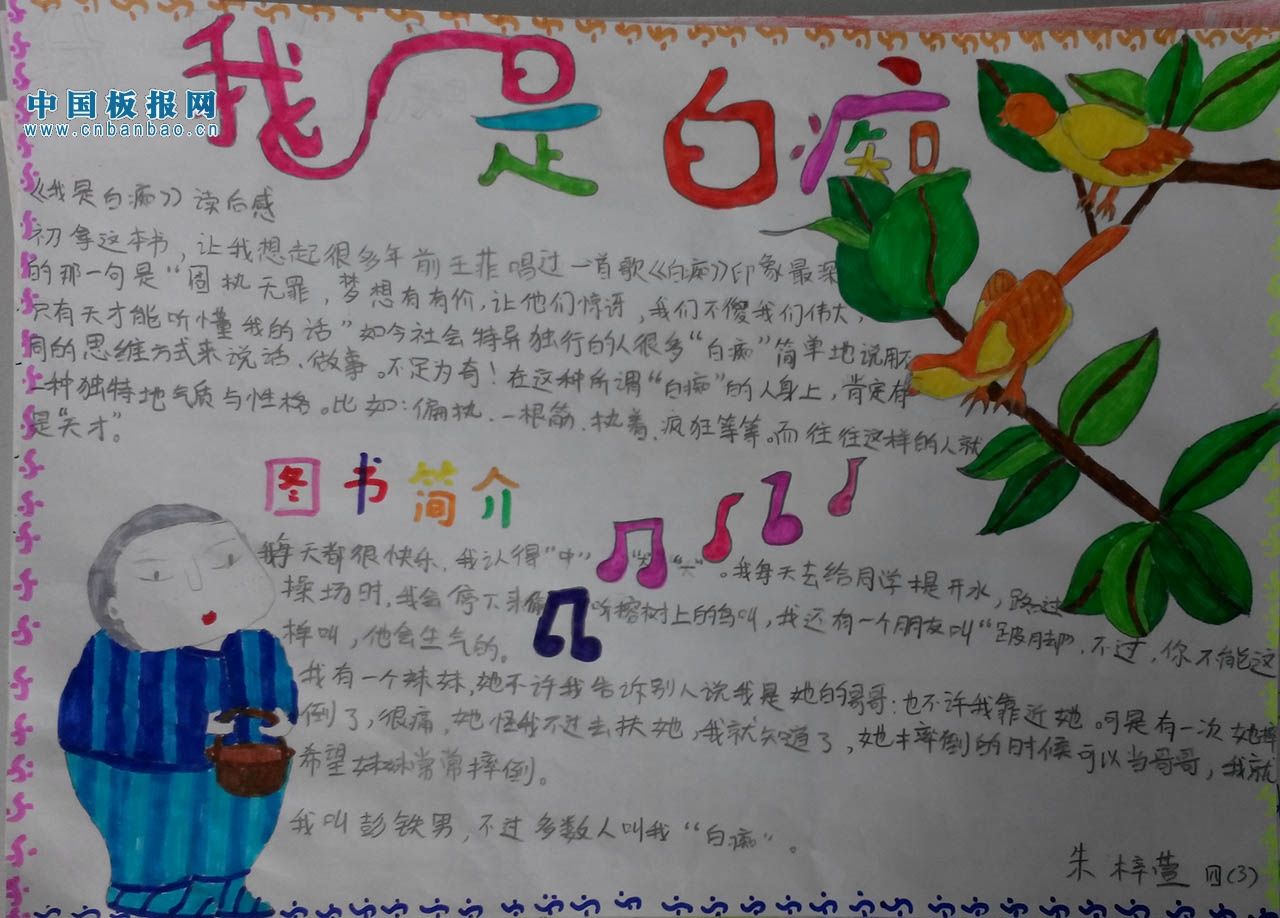 我是白痴
中国板报网
www.cnbanbao.cn
《我是白痴》读后感
初拿这本书，让我想起很多年前王菲唱过一首歌《白痴》印象最深
的那一句是“固执无罪，梦想有有价，让他们惊讶，我们不傻我们伟大，
只有天才能听懂我的话”如今社会特异独行的人很多“白痴”简单地说用不
同的思维方式来说话、做事。不足为有！在这种所谓“白痴”的人身上，肯定有
一种独特地气质与性格。比如：偏执、一根筋、执着、疯狂等等。而往往这样的人就
是“天才”。
图书简介
我每天都很快乐，我认得“中”“大”。我每天去给同学提开水，路过
操场时，我会停下来听榕树上的鸟叫，我还有一个朋友叫“跛脚”，不过，你不能这
样叫，他会生气的。
我有一个妹妹，她不许我告诉别人说我是她的哥哥；也不许我靠近她。可是有一次她摔
倒了，很痛，她怪我不过去扶她，我就知道了，她摔倒的时候可以当哥哥，我就
希望妹妹常常摔倒。
我叫彭铁男，不过多数人叫我“白痴”。
朱梓萱 四(3)